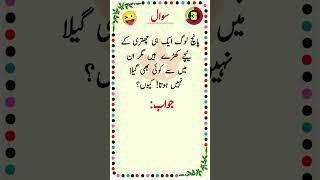 سوال
3
پانچ لوگ ایک ہی چھتری کے
نیچے کھڑے ہیں مگر ان
میں سے کوئی بھی گیلا
نہیں ہوتا! کیوں؟
جواب: